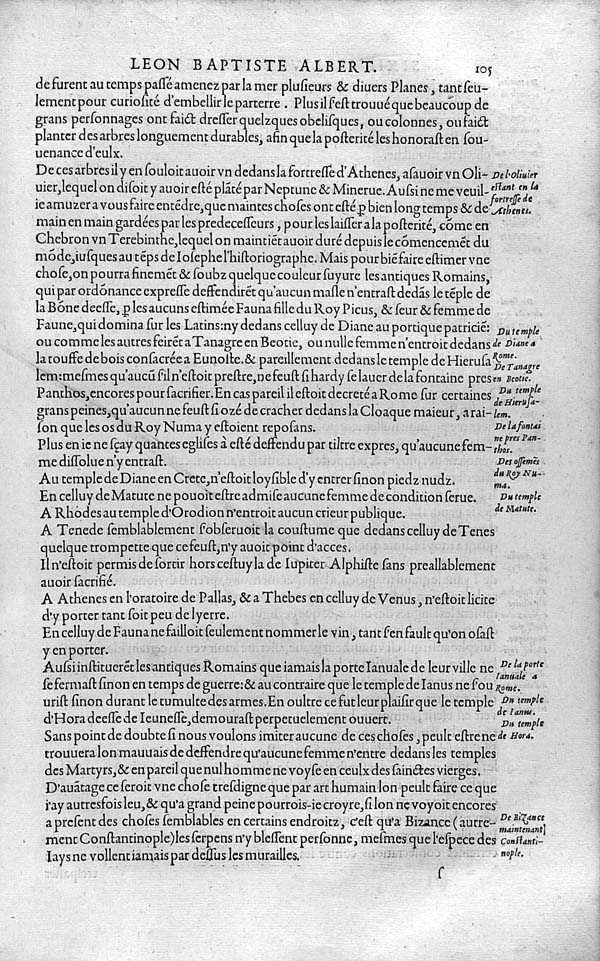 LEON BAPTISTE ALBERT. 105
de furent au temps paſſé amenez par la mer pluſieurs & diuers Planes, tant ſeu-
lement pour curioſité d'embellir le parterre. Plus il ſ'eſt trouué que beaucoup de
grans perſonnages ont faict dreſſer quelzques obeliſques, ou colonnes, ou faict
planter des arbres longuement durables, afin que la poſterité les honoraſt en ſou-
uenance d'eulx.
De ces arbres il y en ſouloit auoir vn dedans la fortreſſe d'Athenes, aſauoir vn Oli-
uier, lequel on diſoit y auoir eſté plãté par Neptune & Minerue. Auſsi ne me veuil-
ie amuzer a vous faire entẽdre, que maintes choſes ont eſté ꝑ bien long temps & de
main en main gardées par les predeceſſeurs, pour les laiſſer a la poſterité, cõme en
Chebron vn Terebinthe, lequel on maintiẽt auoir duré depuis le cõmencemẽt du
mõde, iuſques au tẽps de Ioſephe l'hiſtoriographe. Mais pour biẽ faire eſtimer vne
choſe, on pourra finemẽt & ſoubz quelque couleur ſuyure les antiques Romains,
qui par ordõnance expreſſe deffendirẽt qu'aucun maſle n'entraſt dedãs le tẽple de
la Bõne deeſſe, ꝑ les aucuns eſtimée Fauna fille du Roy Picus, & ſeur & femme de
Faune, qui domina ſur les Latins: ny dedans celluy de Diane au portique patricié:
ou comme les autres feirẽt a Tanagre en Beotie, ou nulle femme n'entroit dedans
la touffe de bois conſacrée a Eunoſte. & pareillement dedans le temple de Hieruſa
lem: meſmes qu'aucũ ſ'il n'eſtoit preſtre, ne feuſt ſi hardy ſe lauer de la fontaine pres
Panthos, encores pour ſacrifier. En cas pareil il eſtoit decreté a Rome ſur certaines
grans peines, qu'aucun ne feuſt ſi ozé de cracher dedans la Cloaque maieur, a rai-
ſon que les os du Roy Numa y eſtoient repoſans.
Plus en ie ne ſçay quantes egliſes à eſté deffendu par tiltre expres, qu'aucune fem-
me diſſolue n'y entraſt.
Au temple de Diane en Crete, n'eſtoit loyſible d'y entrer ſinon piedz nudz.
En celluy de Matute ne pouoit eſtre admiſe aucune femme de condition ſerue.
A Rhodes au temple d'Orodion n'entroit aucun crieur publique.
A Tenede ſemblablement ſ'obſeruoit la couſtume que dedans celluy de Tenes
quelque trompette que ce feuſt, n'y auoit point d'acces.
Il n'eſtoit permis de ſortir hors ceſtuy la de Iupiter Alphiſte ſans preallablement
auoir ſacrifié.
A Athenes en l'oratoire de Pallas, & a Thebes en celluy de Venus, n'eſtoit licite
d'y porter tant ſoit peu de lyerre.
En celluy de Fauna ne failloit ſeulement nommer le vin, tant ſ'en fault qu'on oſaſt
y en porter.
Auſsi inſtituerẽt les antiques Romains que iamais la porte Ianuale de leur ville ne
ſe fermaſt ſinon en temps de guerre: & au contraire que le temple de Ianus ne ſ'ou
uriſt ſinon durant le tumulte des armes. En oultre ce fut leur plaiſir que le temple
d'Hora deeſſe de Ieuneſſe, demouraſt perpetuelement ouuert.
Sans point de doubte ſi nous voulons imiter aucune de ces choſes, peult eſtre ne
trouuera lon mauuais de deffendre qu'aucune femme n'entre dedans les temples
des Martyrs, & en pareil que nul homme ne voyſe en ceulx des ſainctes vierges.
D'auãtage ce ſeroit vne choſe treſdigne que par art humain lon peult faire ce que
i'ay autresfois leu, & qu'a grand peine pourrois-ie croyre, ſi lon ne voyoit encores
a preſent des choſes ſemblables en certains endroitz, c'eſt qu'a Bizance (autre-
ment Conſtantinople) les ſerpens n'y bleſſent perſonne, meſmes que l'eſpece des
Iays ne vollent iamais par deſſus les murailles.
ſ
De l'oliuier
eſtant en la
fortreſſe de
Athenes.
Du temple
de Diane a
Rome.
De Tanagre
en Beotie.
Du temple
de Hieruſa-
lem.
De la fontai
ne pres Pan-
thos.
Des oſſemẽs
du Roy Nu-
ma.
Du temple
de Matute.
De la porte
Ianuale a
Rome.
Du temple
de Ianus.
Du temple
de Hora.
De Bizance
maintenant
Conſtanti-
nople.